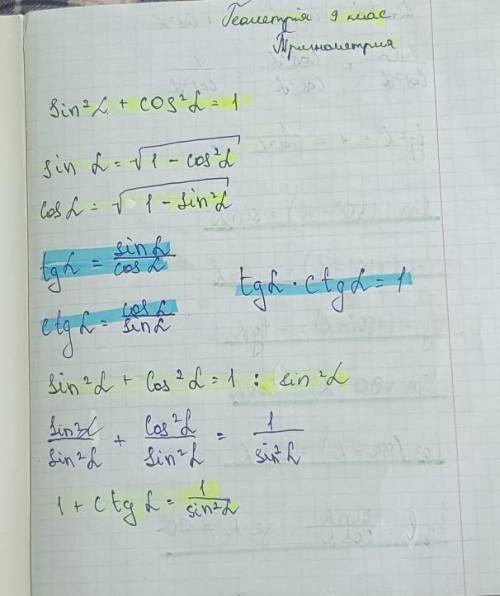 Геометрія 9 клас
Тригнометрия
sin²α + cos²α = 1
sin α = √(1 - cos²α)
cos α = √(1 - sin²α)
tg α = sin α / cos α
ctg α = cos α / sin α
tg α · ctg α = 1
sin²α + cos²α = 1 : sin²α
sin²α / sin²α + cos²α / sin²α = 1 / sin²α
1 + ctg α = 1 / sin²α